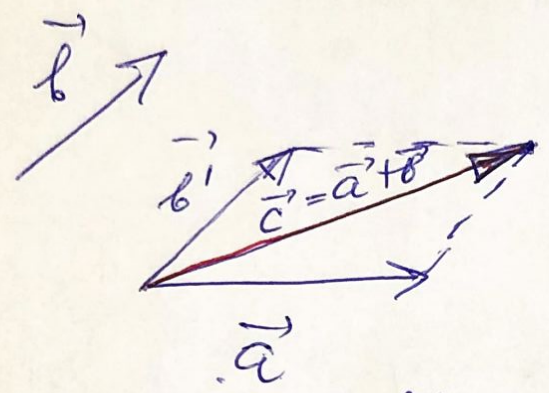 b⃗
b⃗'
c⃗ = a⃗ + b⃗
a⃗